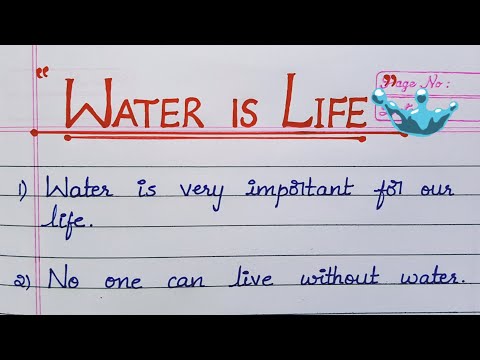 “ WATER IS LIFE ”
Page No :
1) Water is very important for our
life.
2) No one can live without water.